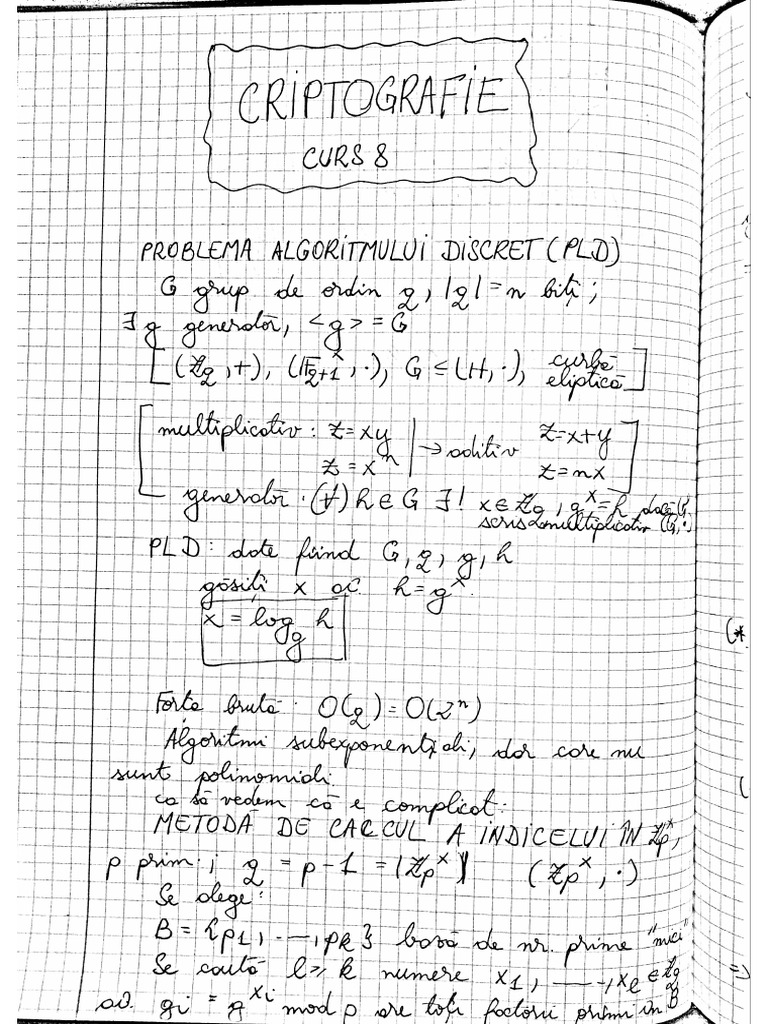 CRIPTOGRAFIE
CURS 8
PROBLEMA ALGORITMULUI DISCRET (PLD)
G grup de ordin q, |q| = n biți;
∃ g generator, <g> = G
[(ℤq, +), (𝔽q+1^×, ·), G ≤ (H, ·), curbă eliptică]
[multiplicativ: z = xy | → aditiv z = x+y
z = x^n | z = nx]
generator · (∀) h ∈ G ∃! x ∈ ℤq, g^x = h dacă G
scris multiplicativ (G, ·)
PLD: date fiind G, q, g, h
găsiți x aî. h = g^x
x = log_g h
Forța brută: O(q) = O(2^n)
Algoritmi subexponențiali, dar care nu
sunt polinomiali.
ca să vedem că e complicat:
METODĂ DE CALCUL A INDICELUI ÎN ℤp^×,
p prim; q = p-1 = |ℤp^×| (ℤp^×, ·)
Se alege:
B = {p1, ..., pk} bază de nr. prime "mici"
Se caută l ≥ k numere x1, ..., xl ∈ ℤq
aî. gi = g^xi mod p are toți factorii primi în B
(*
(
=>